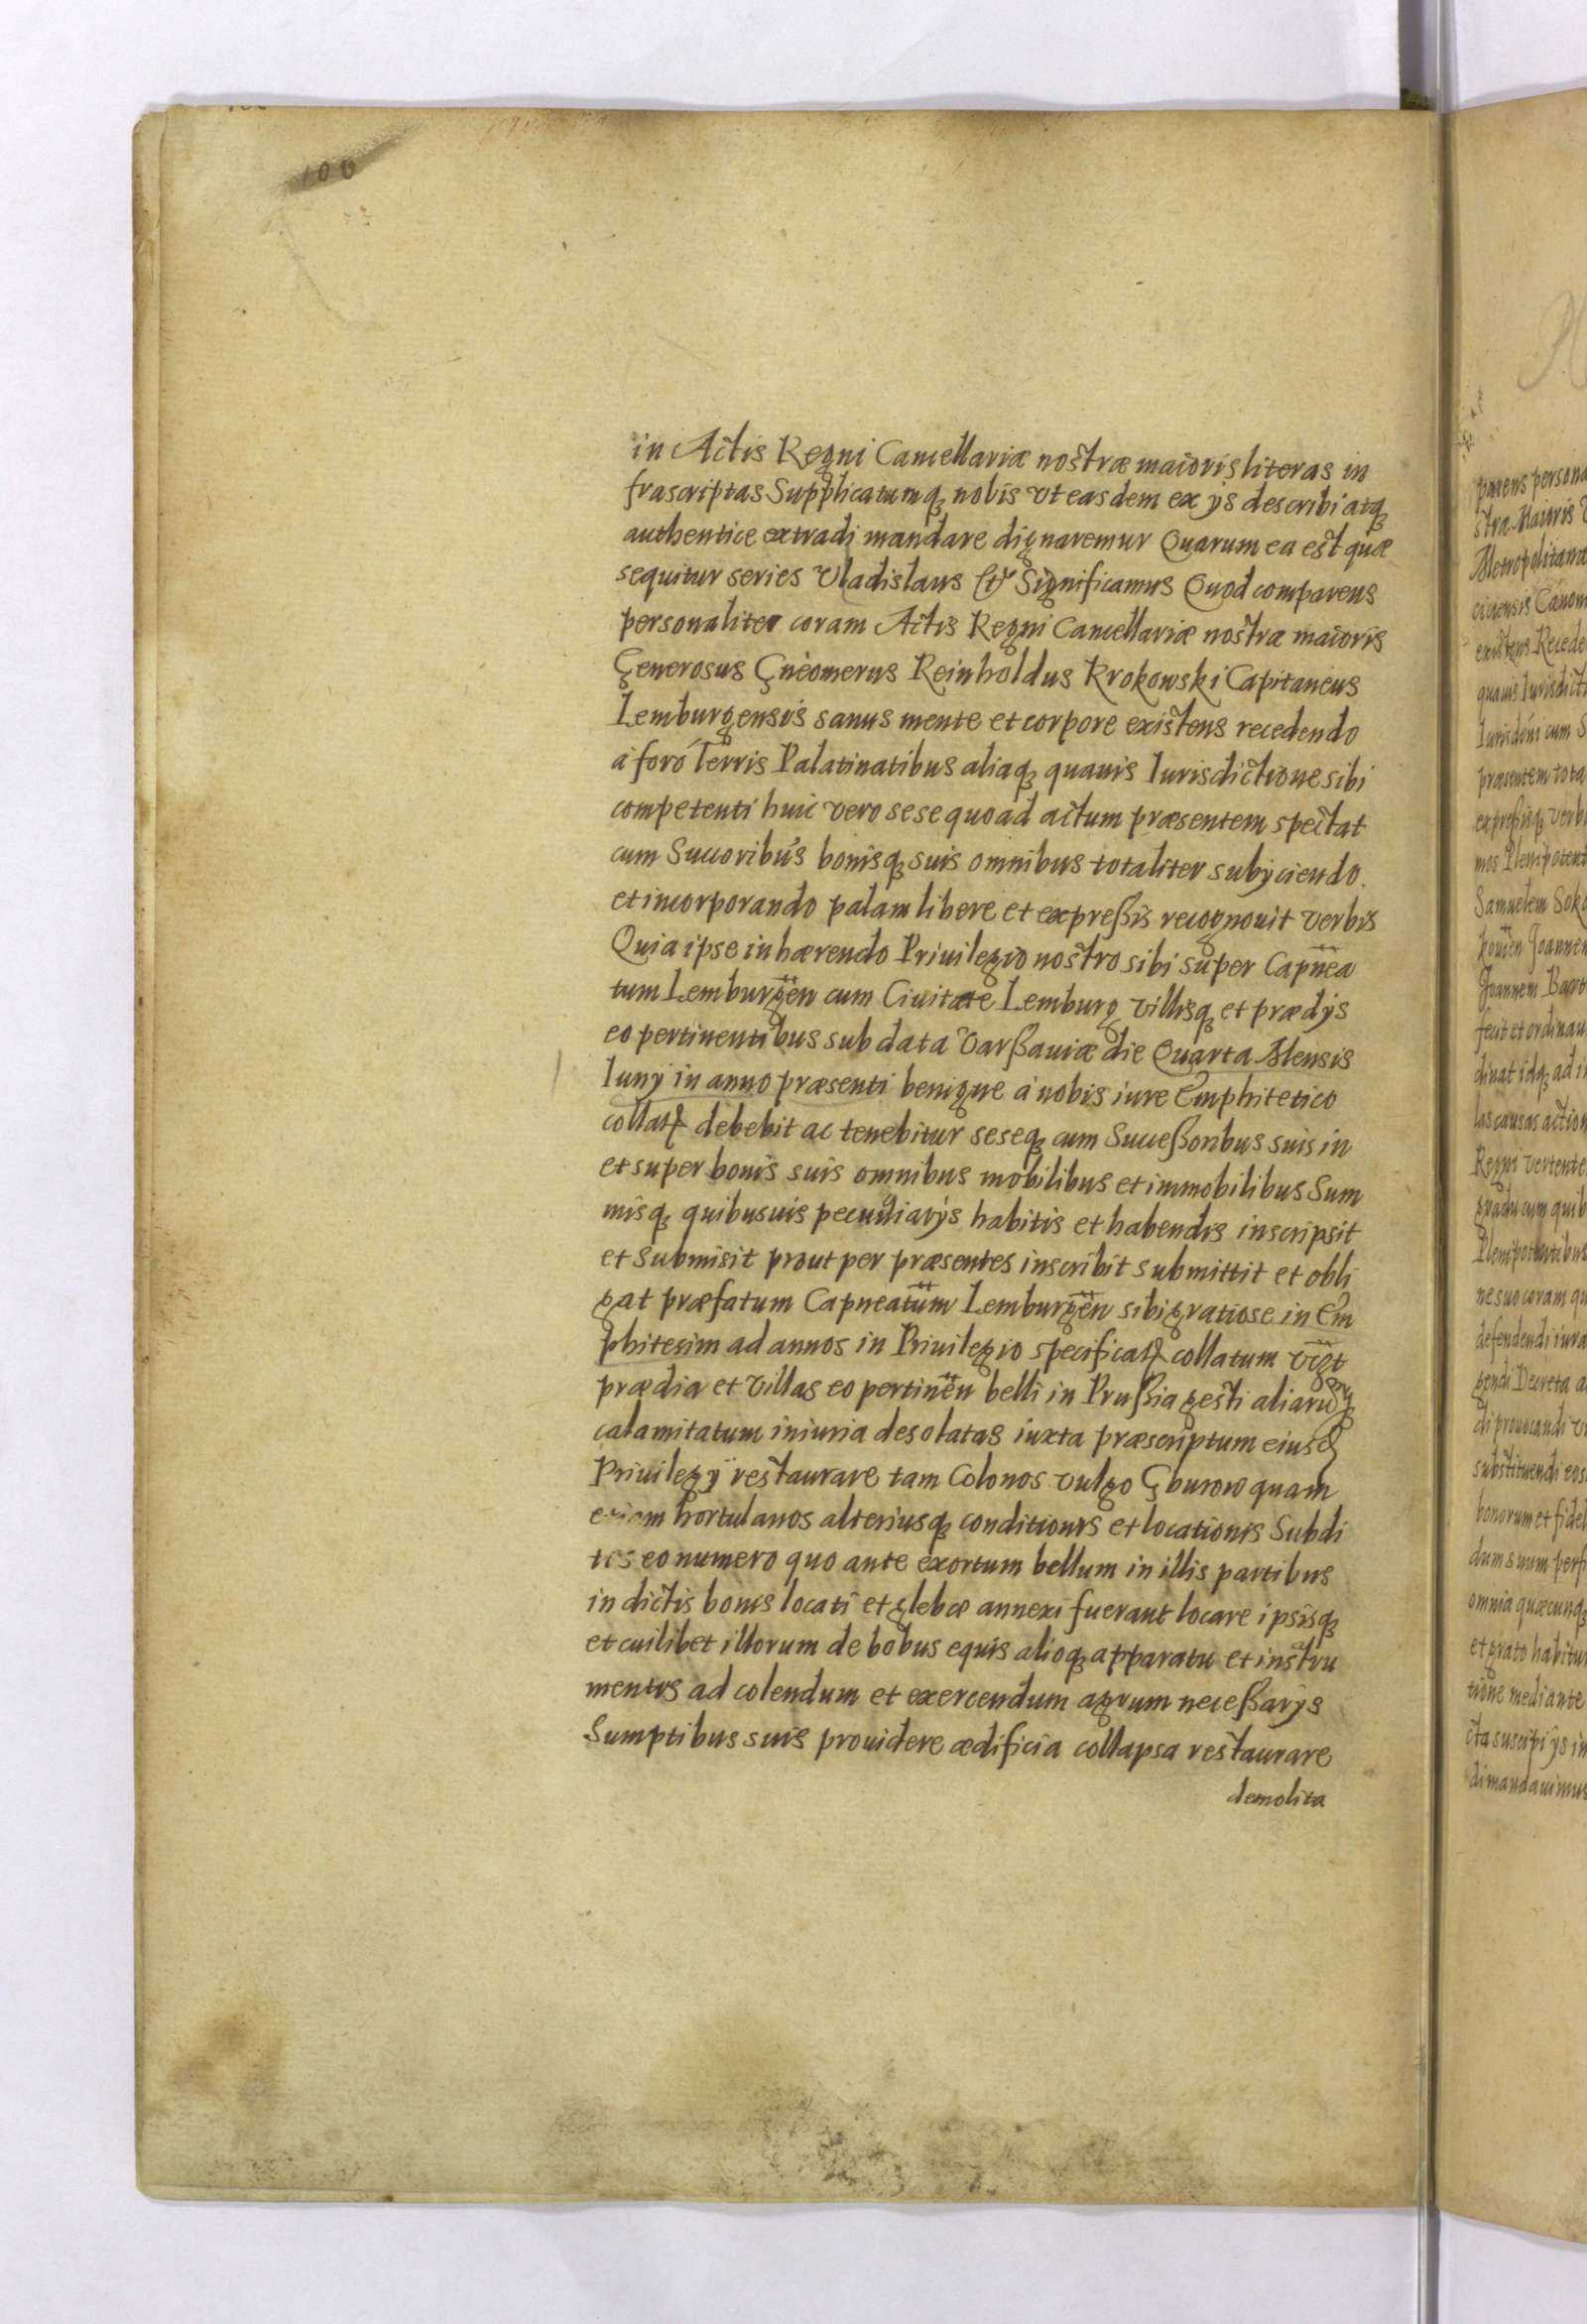 100
in Actis Regni Cancellariæ nostræ maioris literas in
frascriptas Supplicatumq nobis vt easdem ex ijs describi atq
authentice extradi mandare dignaremur Quarum ea est quæ
sequitur series Vladislaus etc Significamus Quod comparens
personaliter coram Actis Regni Cancellariæ nostræ maioris
Generosus Gneomerus Reinholdus Krokowski Capitaneus
Lemburgensis sanus mente et corpore existens recedendo
à foro Terris Palatinatibus aliaq quauis Iurisdictione sibi
competenti huic vero sese quoad actum præsentem spectat
cum Succoribus bonisq suis omnibus totaliter subijciendo
et incorporando palam libere et expreßis recognouit verbis
Quia ipse inhærendo Priuilegio nostro sibi super Capnea
tum Lemburgen cum Ciuitate Lemburg villisq et prædijs
eo pertinentibus sub data Varßauiæ die Quarta Mensis
Iunij in anno præsenti benigne à nobis iure Emphitetico
collat debebit ac tenebitur seseq cum Succeßoribus suis in
et super bonis suis omnibus mobilibus et immobilibus Sum
misq quibusuis pecuniarijs habitis et habendis inscripsit
et submisit prout per præsentes inscribit submittit et obli
gat præfatum Capneatum Lemburgen sibi gratiose in Em
phitesim ad annos in Priuilegio specificat collatum vigt
prædia et villas eo pertinen belli in Prußia gesti aliaruq
calamitatum iniuria desolatas iuxta præscriptum eiusd
Priuilegij restaurare tam Colonos vulgo Gburow quam
etiam hortulanos alteriusq conditionis et locationis Subdi
tos eo numero quo ante exortum bellum in illis partibus
in dictis bonis locati et glebæ annexi fuerant locare ipsisq
et cuilibet illorum de bobus equis alioq apparatu et instru
mentis ad colendum et exercendum agrum neceßarijs
Sumptibus suis prouidere ædificia collapsa restaurare
demolita
parens persona
stræ Maioris
Metropolitana
existens Recede
quauis Iurisdicti
præsentem tota
expreßisq verbi
mos Plenipotent
Samuelem Soko
Joannem
fecit et ordinau
dinat idq ad
las causas action
Regni vertente
gradu cum quib
Plenipotentibus
ne suo coram qu
defendendi iura
gendi Decreta a
substituendi eos
bonorum et fidel
dum suum perf
omnia quæcunq
et grato habitur
tione mediante
di mandauimus